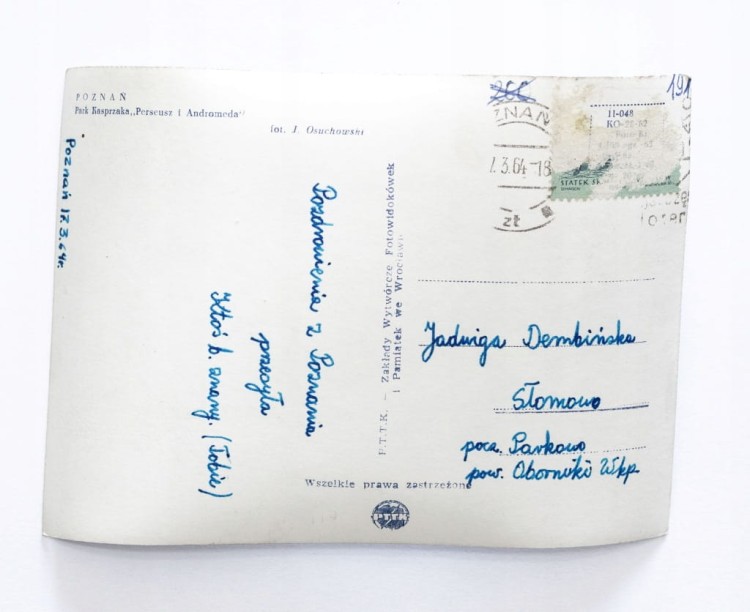 POZNAŃ
Park Kasprzaka „Perseusz i Andromeda"
fot. J. Osuchowski
Poznań 17.3.64r.
Pozdrowienia z Poznania
przesyła
Ktoś b. znany. (Tobie)
P.T.T.K. — Zakłady Wytwórcze Fotowidokówek
i Pamiątek we Wrocławiu
Wszelkie prawa zastrzeżone
PTTK
191
ZNAŃ
7.3.64-18
zł
11-048
KO-
STATEK
Jadwiga Dembińska
Słomowo
pocz. Parkowo
pow. Oborniki Wlkp.